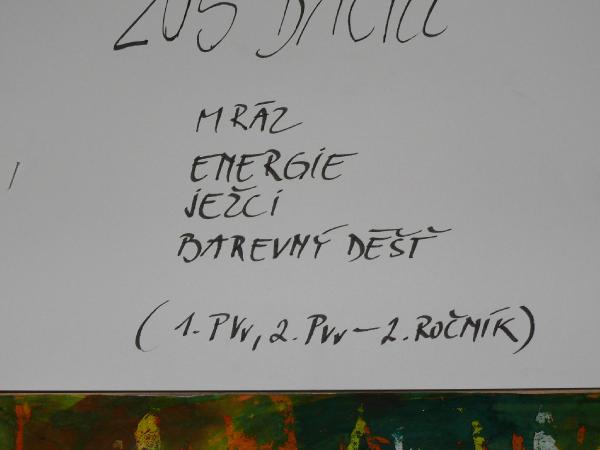 ZUŠ
MRÁZ
ENERGIE
JEŽCI
BAREVNÝ DÉŠŤ
(1. PVv, 2. PVv – 2. ROČNÍK)